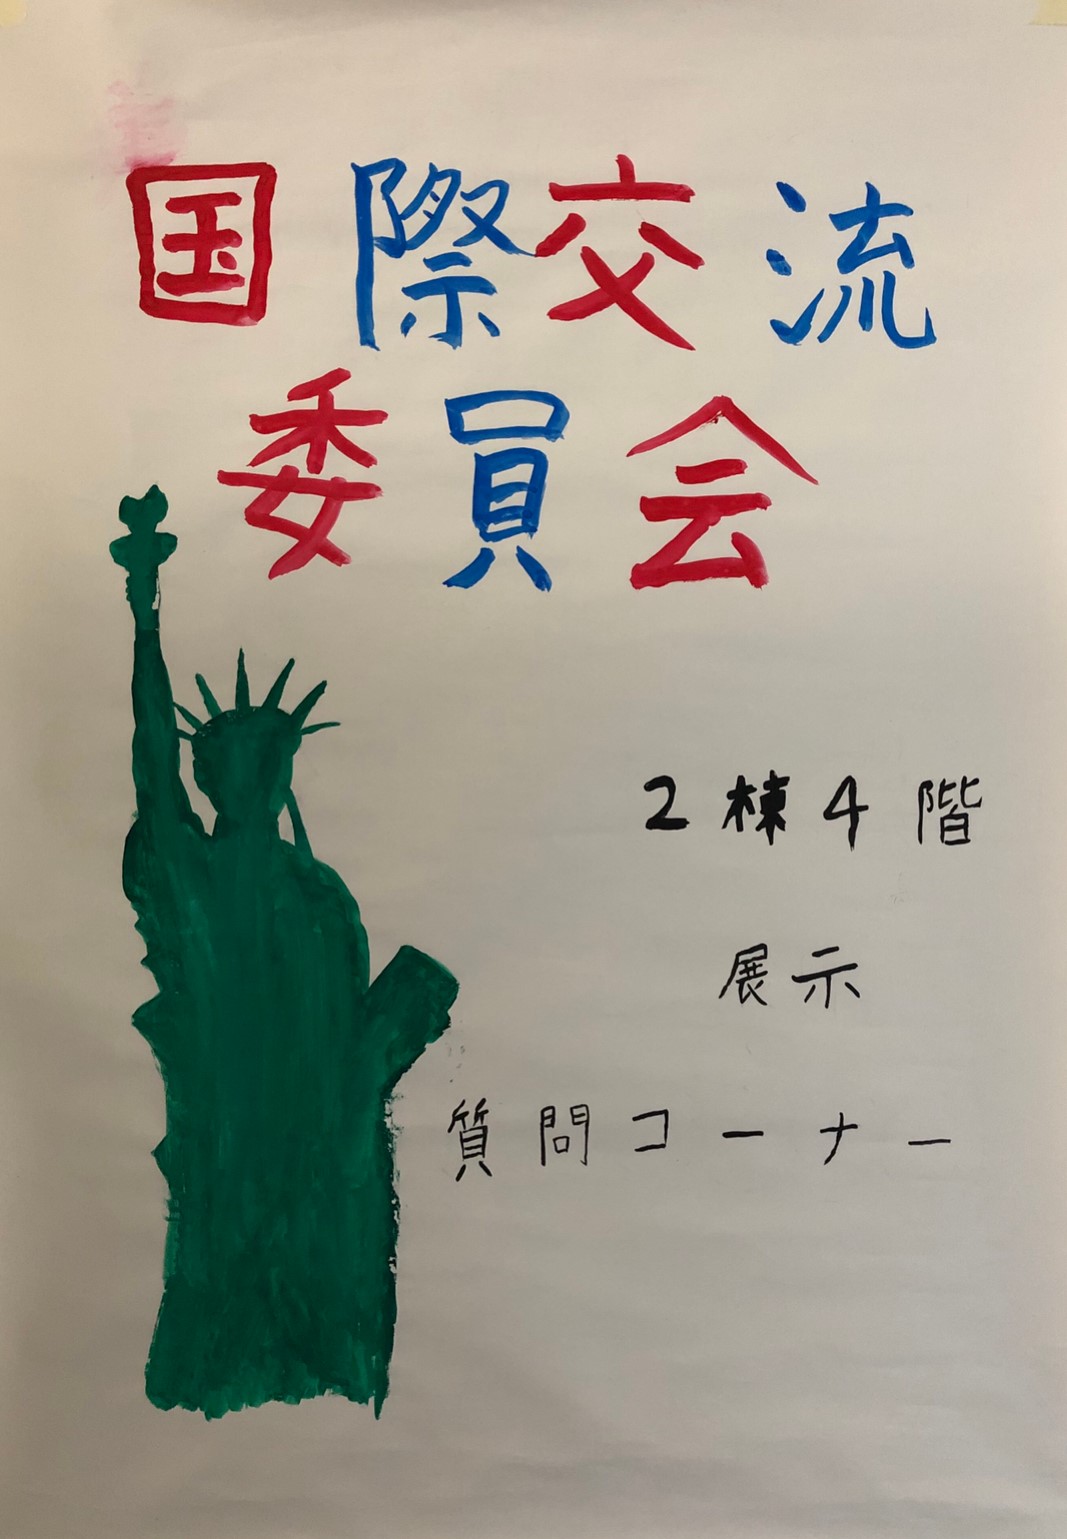 国際交流
委員会
2棟4階
展示
質問コーナー